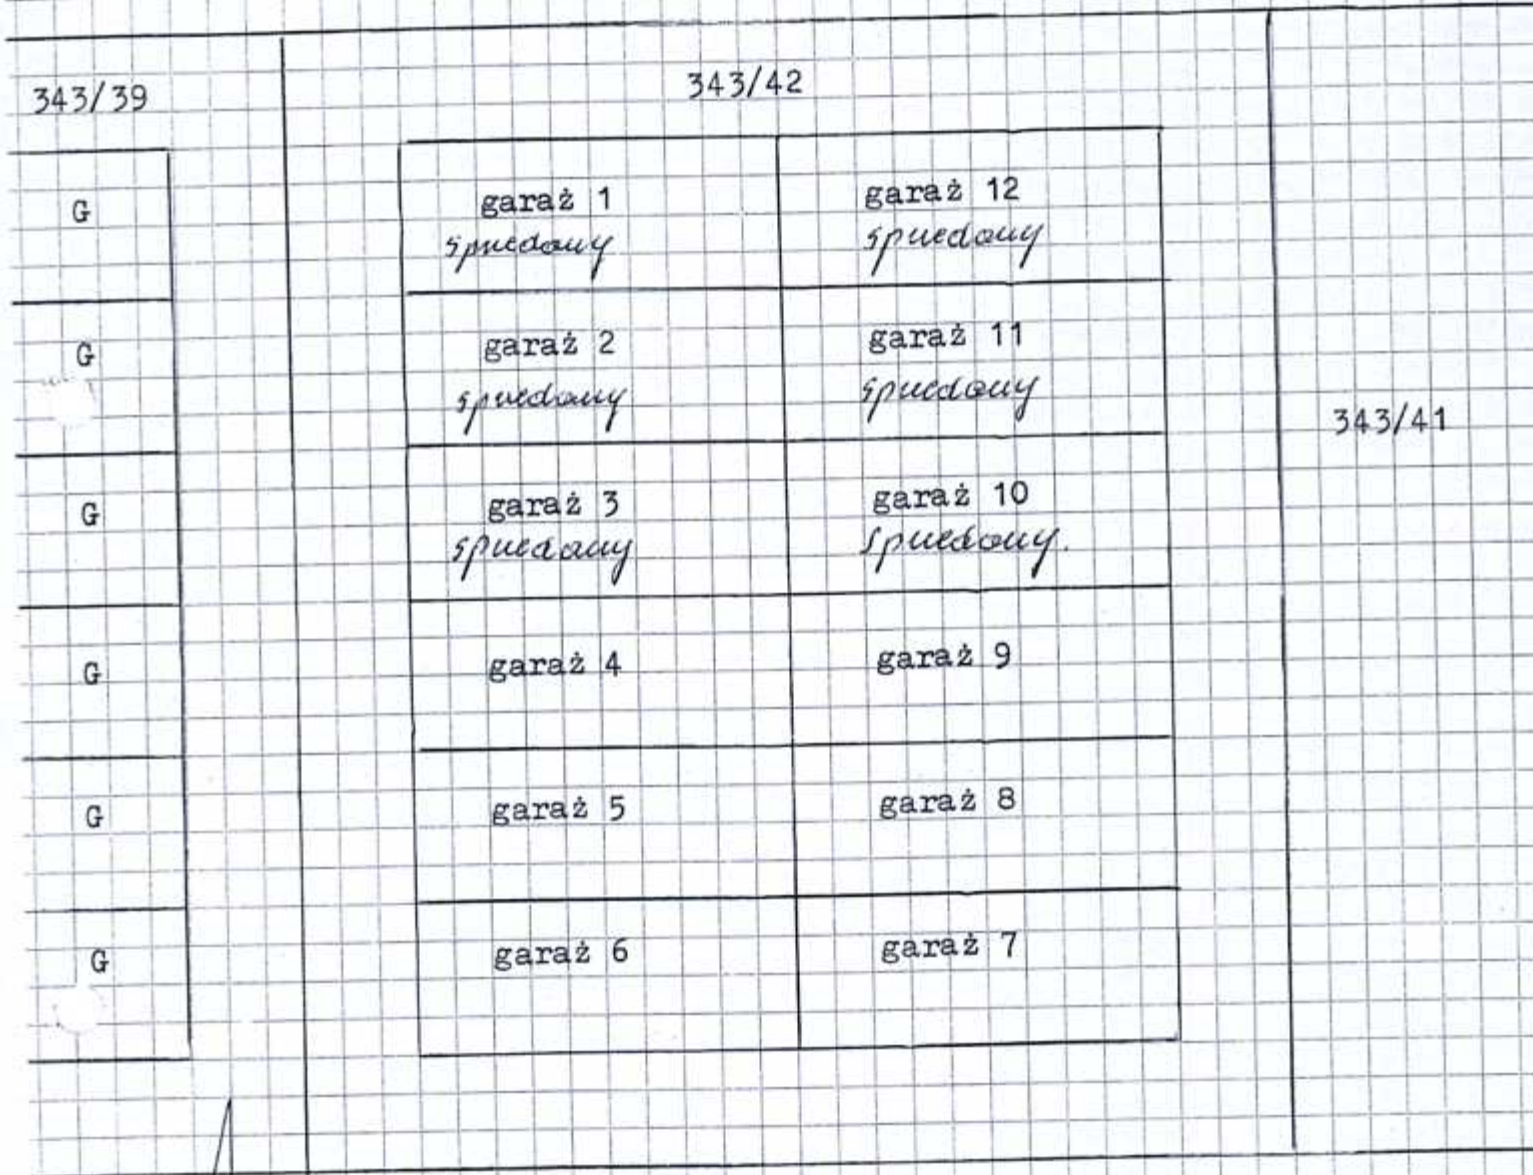 343/39
343/42
G
garaż 1
sprzedany
garaż 12
sprzedany
G
garaż 2
sprzedany
garaż 11
sprzedany
343/41
G
garaż 3
sprzedany
garaż 10
sprzedany.
G
garaż 4
garaż 9
G
garaż 5
garaż 8
G
garaż 6
garaż 7